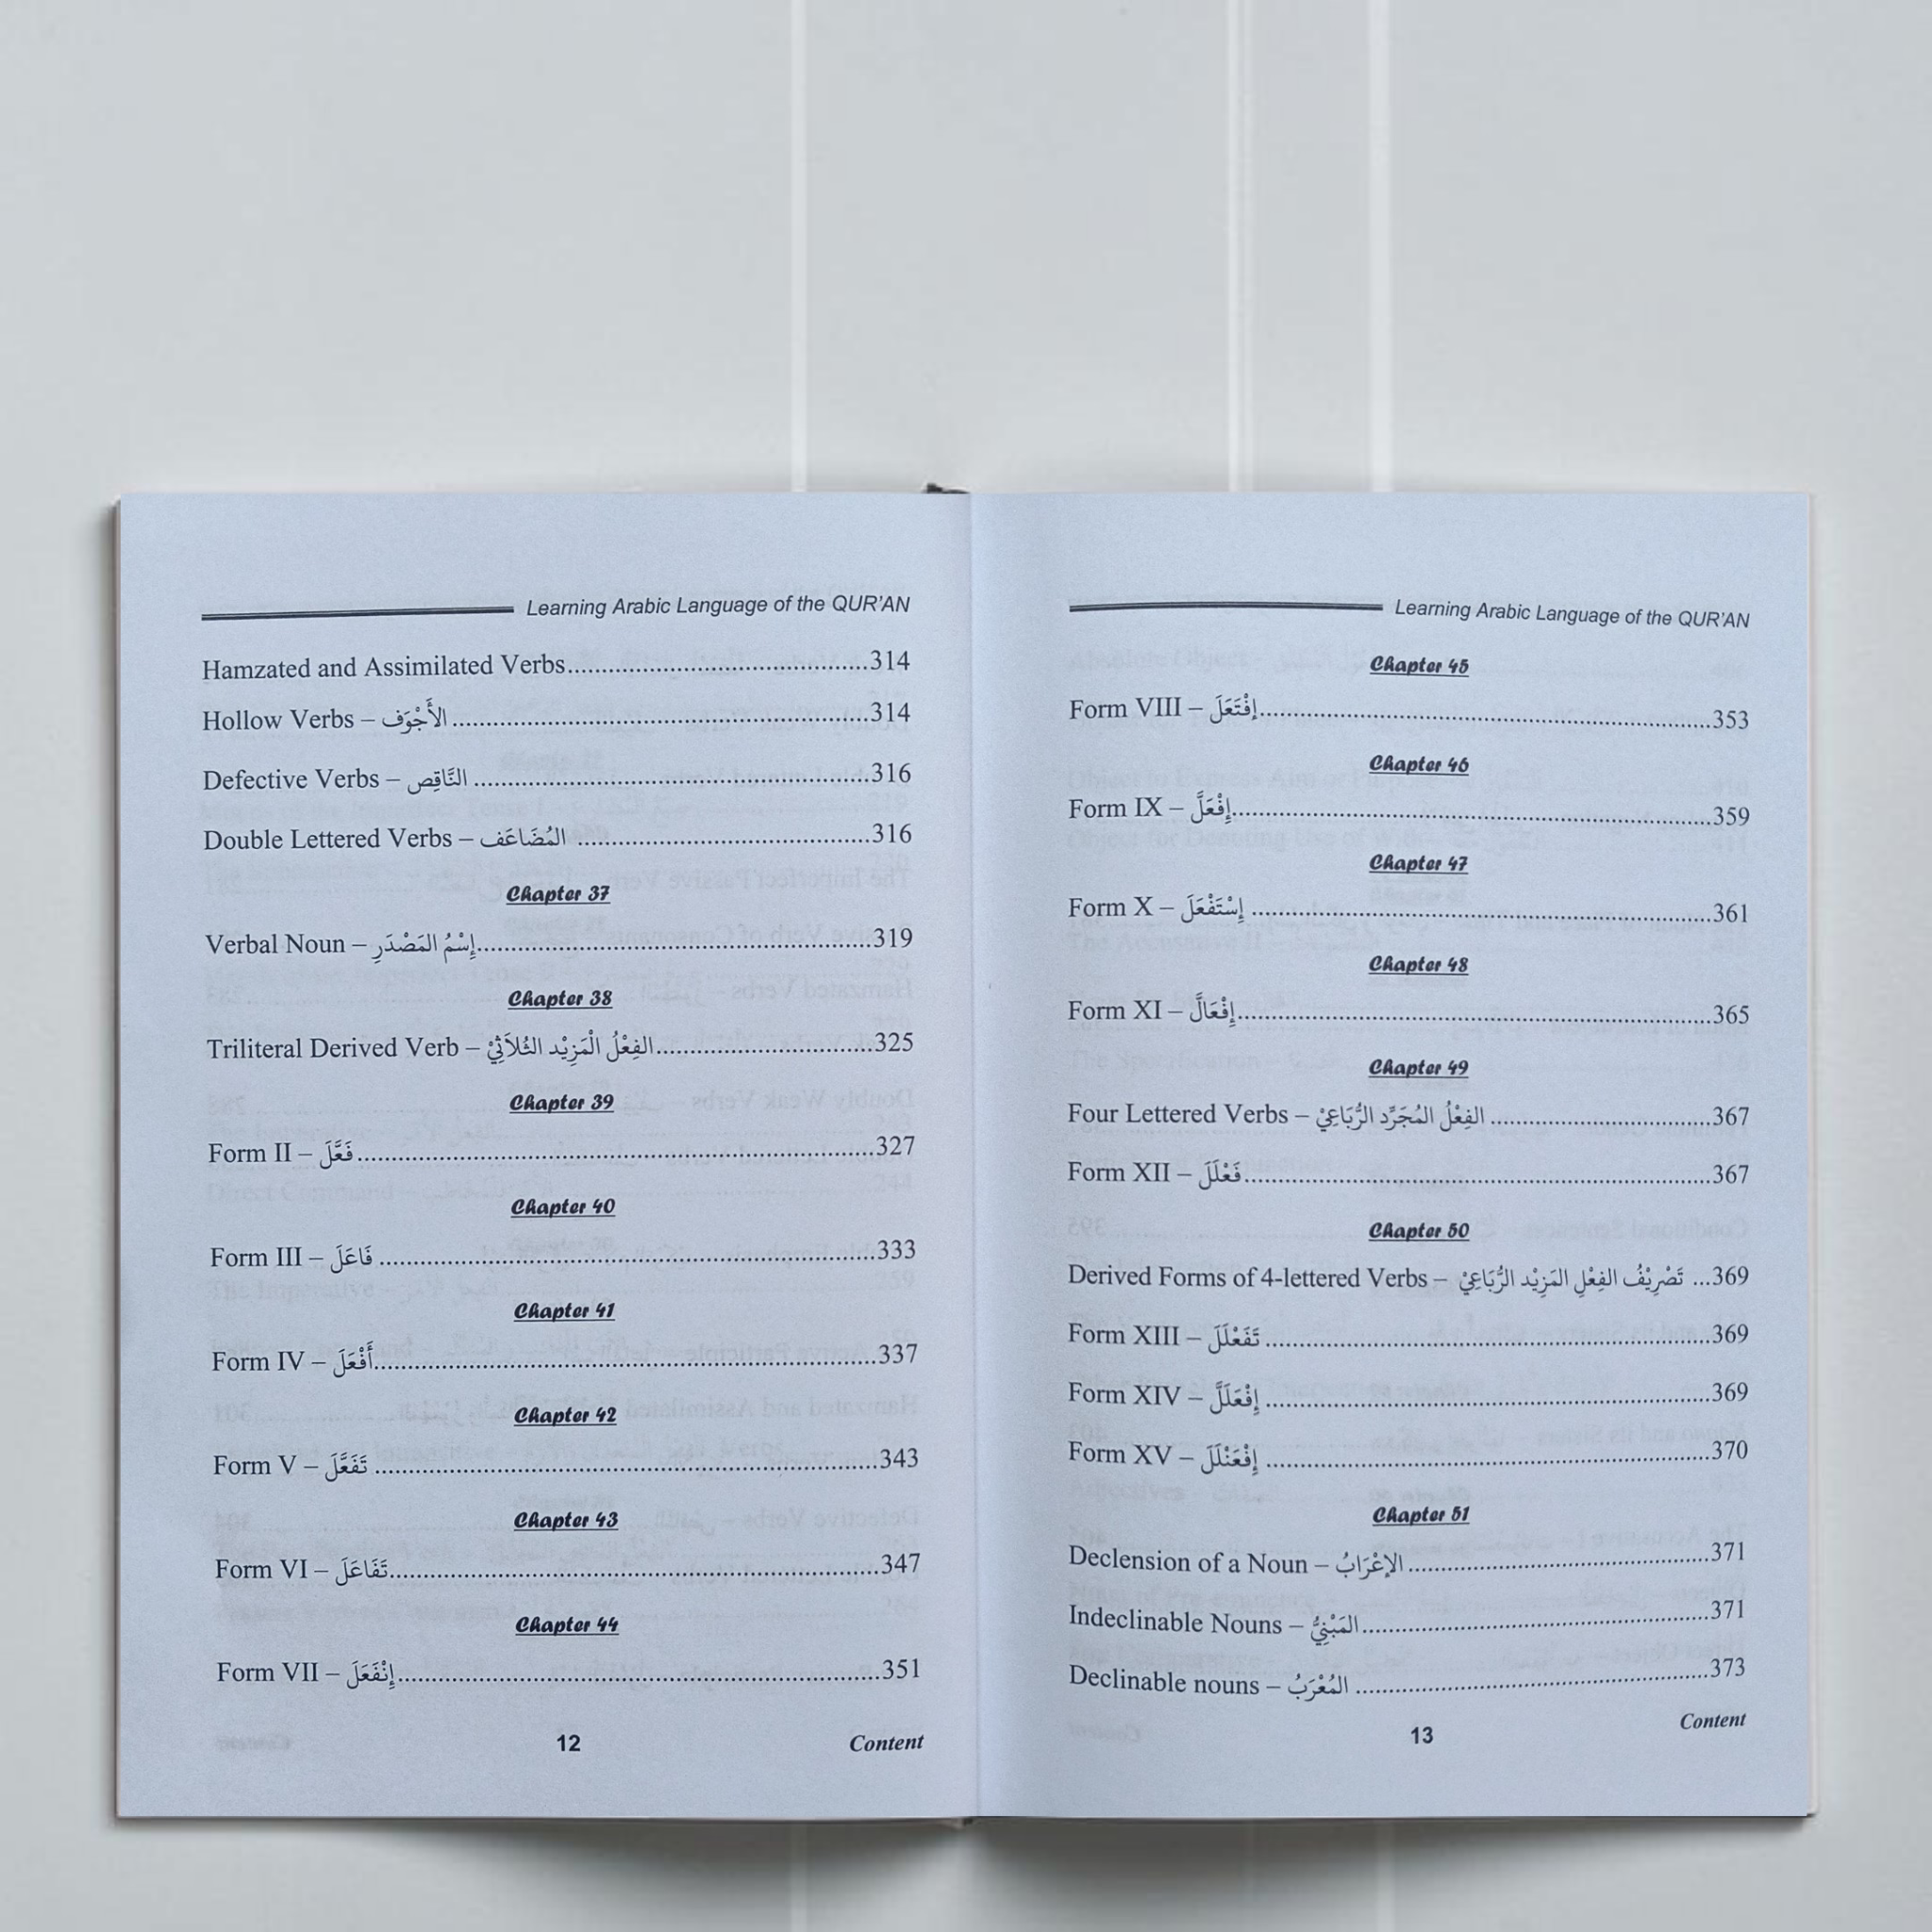 Learning Arabic Language of the QUR'AN
Hamzated and Assimilated Verbs..............................................314
Hollow Verbs – الأَجْوَف..............................................................314
Defective Verbs – النَّاقِص ...........................................................316
Double Lettered Verbs – المُضَاعَف ...........................................316
Chapter 37
Verbal Noun – إِسْمُ المَصْدَرِ...........................................................319
Chapter 38
Triliteral Derived Verb – الفِعْلُ الْمَزِيْد الثُلاَثِيْ................................325
Chapter 39
Form II – فَعَّلَ............................................................................327
Chapter 40
Form III – فَاعَلَ .........................................................................333
Chapter 41
Form IV – أَفْعَلَ..........................................................................337
Chapter 42
Form V – تَفَعَّلَ ..........................................................................343
Chapter 43
Form VI – تَفَاعَلَ........................................................................347
Chapter 44
Form VII – إِنْفَعَلَ.......................................................................351
12
Content
Learning Arabic Language of the QUR'AN
Chapter 45
Form VIII – إِفْتَعَلَ...................................................................353
Chapter 46
Form IX – إِفْعَلَّ.......................................................................359
Chapter 47
Form X – إِسْتَفْعَلَ ....................................................................361
Chapter 48
Form XI – إِفْعَالَّ......................................................................365
Chapter 49
Four Lettered Verbs – الفِعْلُ المُجَرَّد الرُّبَاعِيْ ................................367
Form XII – فَعْلَلَ.....................................................................367
Chapter 50
Derived Forms of 4-lettered Verbs – تَصْرِيْفُ الفِعْلِ المَزِيْد الرُّبَاعِيْ ...369
Form XIII – تَفَعْلَلَ .................................................................369
Form XIV – إِفْعَلَلَّ .................................................................369
Form XV – إِفْعَنْلَلَ .................................................................370
Chapter 51
Declension of a Noun – الإِعْرَابُ............................................371
Indeclinable Nouns – المَبْنِيُّ...................................................371
Declinable nouns – المُعْرَبُ ....................................................373
13
Content